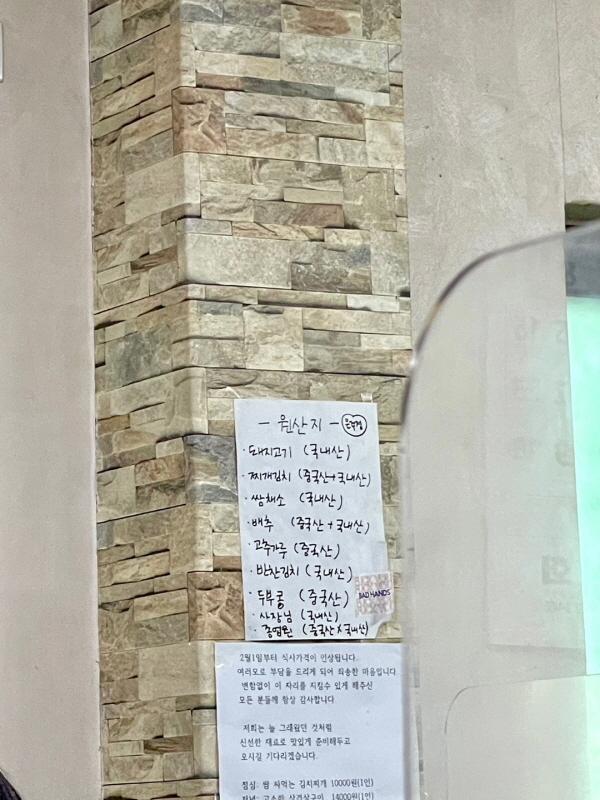 - 원산지 -
· 돼지고기 (국내산)
· 찌개김치 (중국산+국내산)
· 쌈채소 (국내산)
· 배추 (중국산+국내산)
· 고추가루 (중국산)
· 반찬김치 (국내산)
· 두부콩 (중국산)
· 사장님 (국내산)
· 종업원 (중국산X국내산)
BAD HANDS
2월1일부터 식사가격이 인상됩니다.
여러모로 부담을 드리게 되어 죄송한 마음입니다
변함없이 이 자리를 지킬수 있게 해주신
모든 분들께 항상 감사합니다.
저희는 늘 그래왔던 것처럼
신선한 재료로 맛있게 준비해두고
오시길 기다리겠습니다.
점심: 쌈 싸먹는 김치찌개 10000원(1인)
저녁: 고소한 삼겹살구이 14000원(1인)